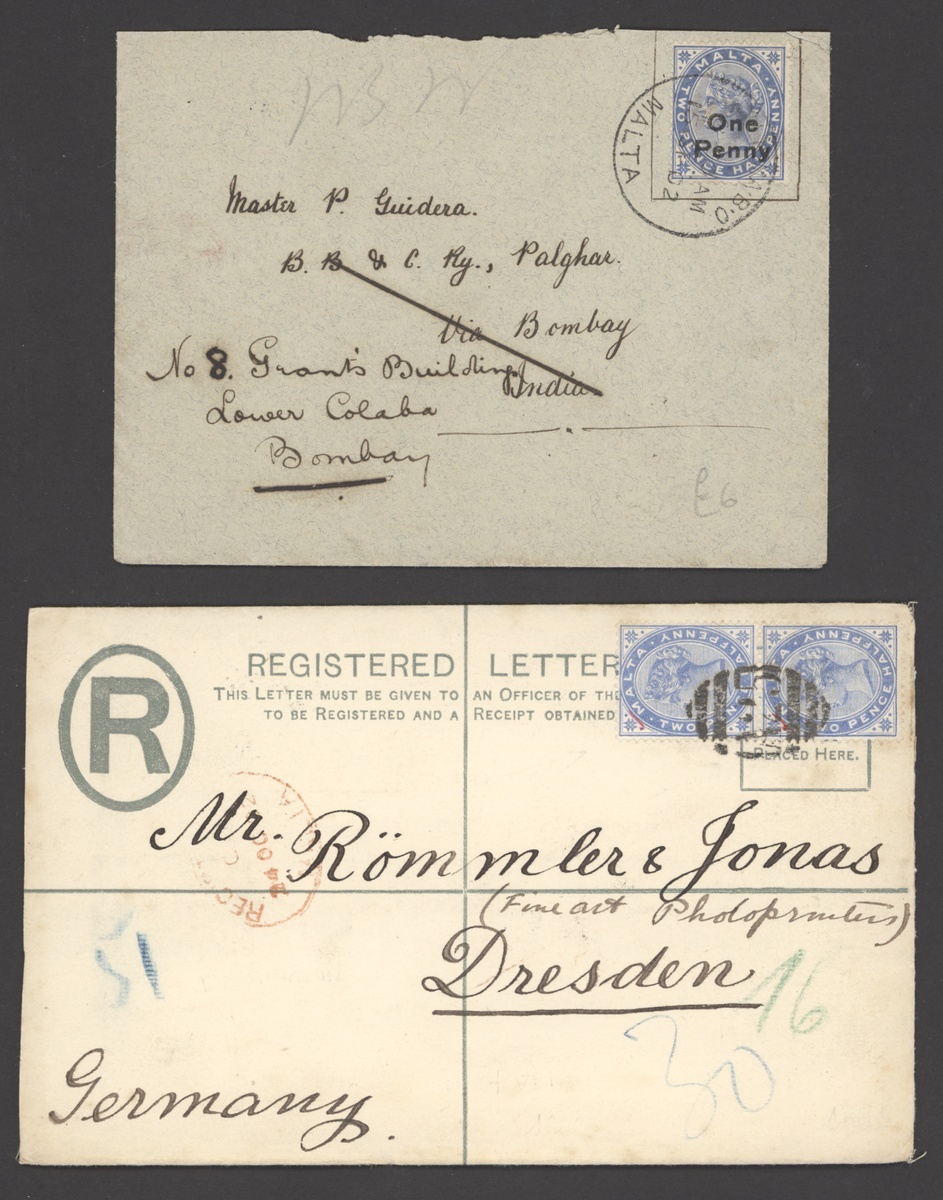 MALTA
TWO PENCE HALFPENNY
One
Penny
MALTA
AM
02
Master P. Guidera.
B. B & C. Ry., Palghar.
Via Bombay
India
No 8. Grant's Building
Lower Colaba
Bombay
£6
R
REGISTERED LETTER
THIS LETTER MUST BE GIVEN TO AN OFFICER OF THE
TO BE REGISTERED AND A RECEIPT OBTAINED
PLACED HERE.
MALTA
Mr. Römmler & Jonas
(Fine art Photoprinters)
Dresden
51
16
30
Germany.